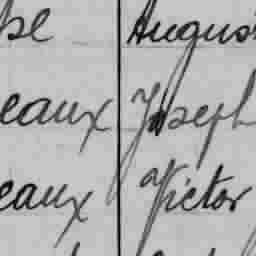 se Augus
eaux Joseph
eaux Victor